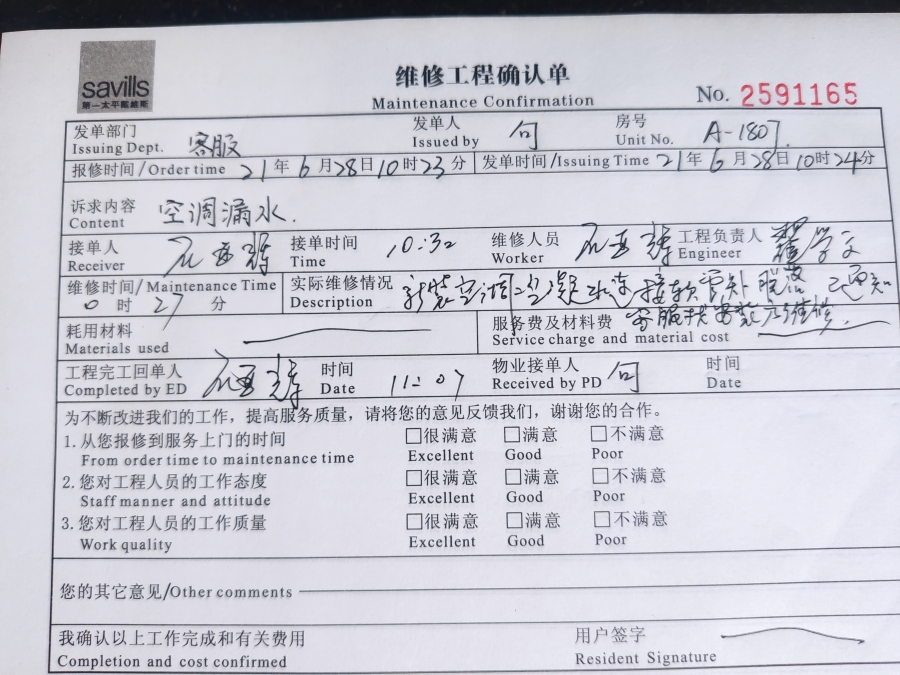 savills
第一太平戴维斯
维修工程确认单
Maintenance Confirmation
No. 2591165
发单部门 客服 发单人 向 房号 A-1807
Issuing Dept. Issued by Unit No.
报修时间/Order time 21年6月28日10时23分 发单时间/Issuing Time 21年6月28日10时24分
诉求内容 空调漏水.
Content
接单人 接单时间 10:32 维修人员 工程负责人
Receiver Time Worker Engineer
维修时间/Maintenance Time 实际维修情况 新装空调 冷凝水 接软管处脱落 已通知
0时27分 Description 客服找安装 维修.
耗用材料 服务费及材料费
Materials used Service charge and material cost
工程完工回单人 时间 11:07 物业接单人 向 时间
Completed by ED Date Received by PD Date
为不断改进我们的工作，提高服务质量，请将您的意见反馈我们，谢谢您的合作。
1.从您报修到服务上门的时间 □很满意 □满意 □不满意
From order time to maintenance time Excellent Good Poor
2.您对工程人员的工作态度 □很满意 □满意 □不满意
Staff manner and attitude Excellent Good Poor
3.您对工程人员的工作质量 □很满意 □满意 □不满意
Work quality Excellent Good Poor
您的其它意见/Other comments
我确认以上工作完成和有关费用 用户签字
Completion and cost confirmed Resident Signature